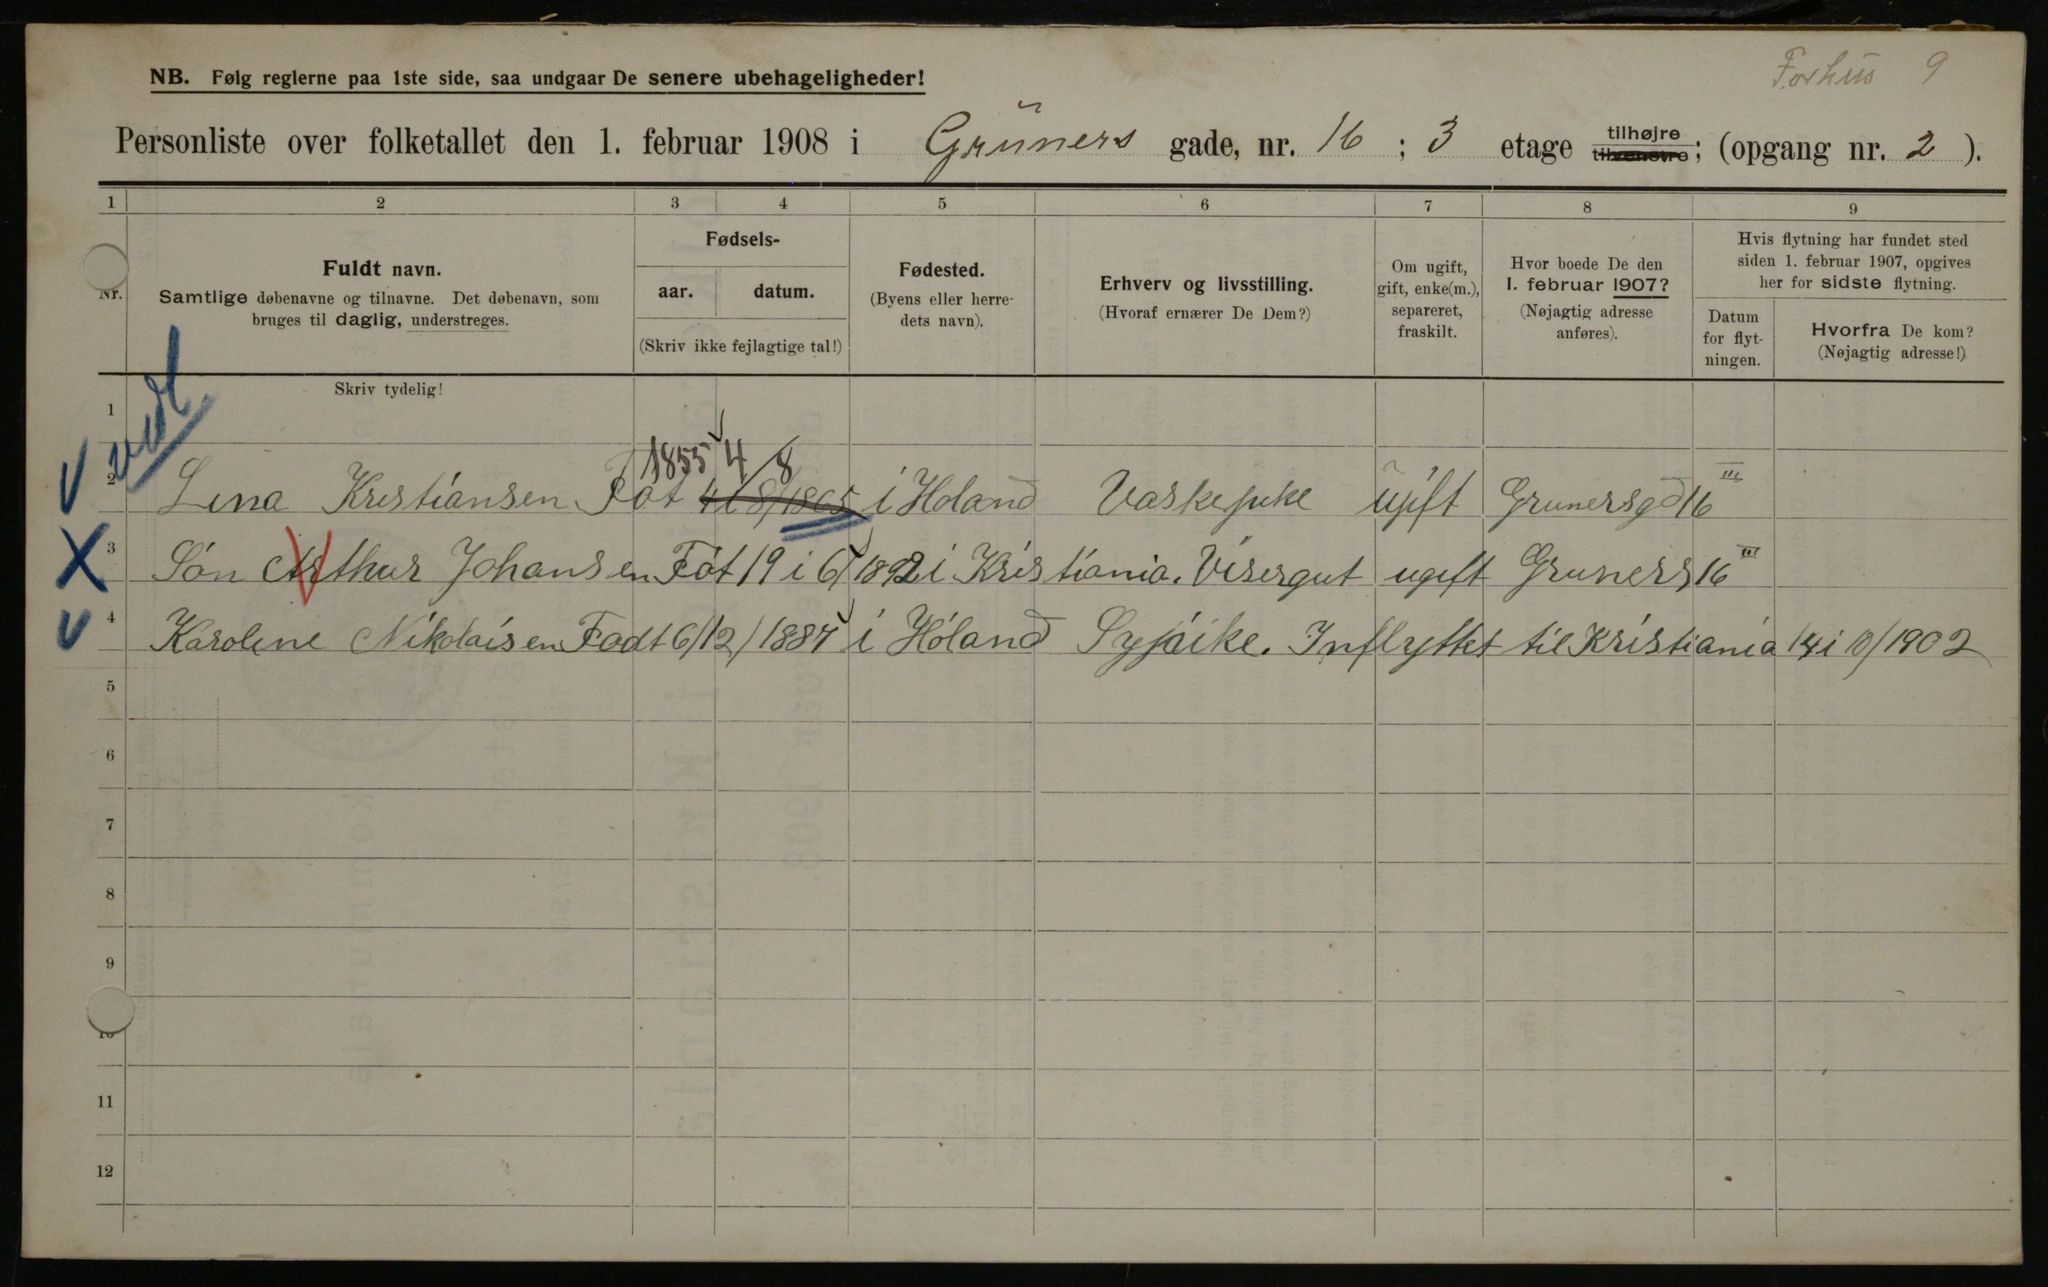 Forhus 9
NB. Følg reglerne paa 1ste side, saa undgaar De senere ubehageligheder!
Personliste over folketallet den 1. februar 1908 i Grüners gade, nr. 16 ; 3 etage tilhøjre tilvenstre; (opgang nr. 2 ).
1 2 3 4 5 6 7 8 9
Nr.
Fuldt navn.
Samtlige døbenavne og tilnavne. Det døbenavn, som
bruges til daglig, understreges.
Fødsels-
aar. datum.
(Skriv ikke fejlagtige tal!)
Fødested.
(Byens eller herre-
dets navn).
Erhverv og livsstilling.
(Hvoraf ernærer De Dem?)
Om ugift,
gift, enke(m.),
separeret,
fraskilt.
Hvor boede De den
1. februar 1907?
(Nøjagtig adresse
anføres).
Hvis flytning har fundet sted
siden 1. februar 1907, opgives
her for sidste flytning.
Datum
for flyt-
ningen.
Hvorfra De kom?
(Nøjagtig adresse!)
Skriv tydelig!
1
1855 4/8
2 Lina Kristiansen Föt 4/8/1865 i Holand Vaskepike ugift Grunersgd 16 III
3 Sön Arthur Johansen Föt 19 i 6/1892 i Kristiania. Visergut ugift Gruners 16 III
4 Karoline Nikolaisen Födt 6/12/1887 i Höland Sypike. Inflyttet til Kristiania 14 i 10/1902
5
6
7
8
9
10
11
12